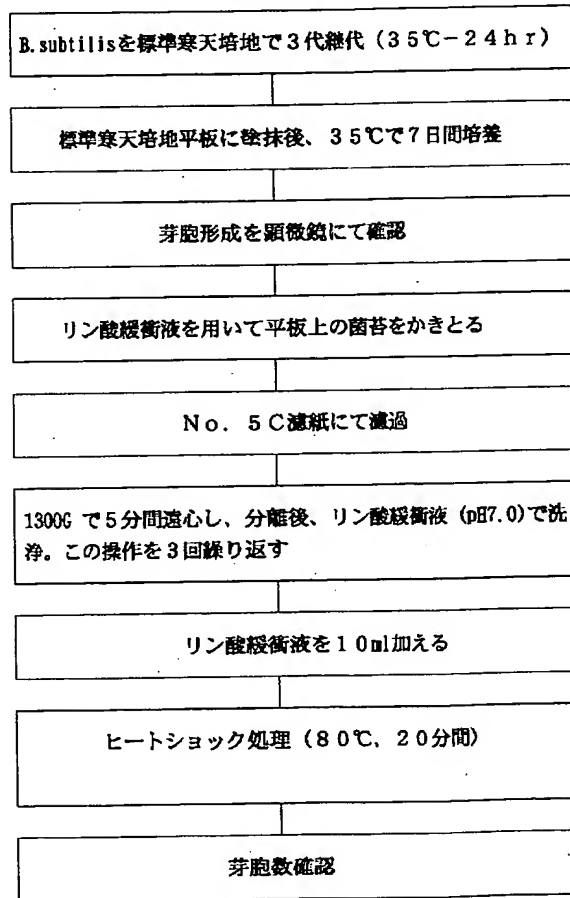 B.subtilisを標準寒天培地で3代継代(35℃-24hr)
標準寒天培地平板に塗抹後、35℃で7日間培養
芽胞形成を顕微鏡にて確認
リン酸緩衝液を用いて平板上の菌苔をかきとる
No.5C濾紙にて濾過
1300Gで5分間遠心し、分離後、リン酸緩衝液(pH7.0)で洗
浄。この操作を3回繰り返す
リン酸緩衝液を10ml加える
ヒートショック処理(80℃,20分間)
芽胞数確認